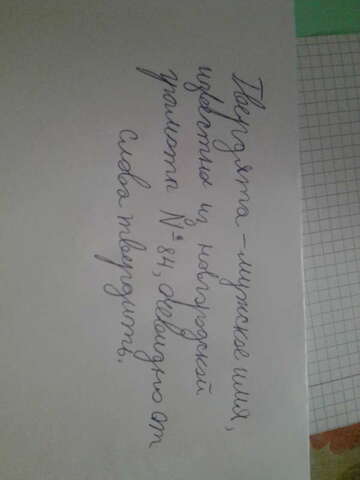 Твердята – мужское имя,
известны из новгородской
грамоты № 84, очевидно от
слова твердить.